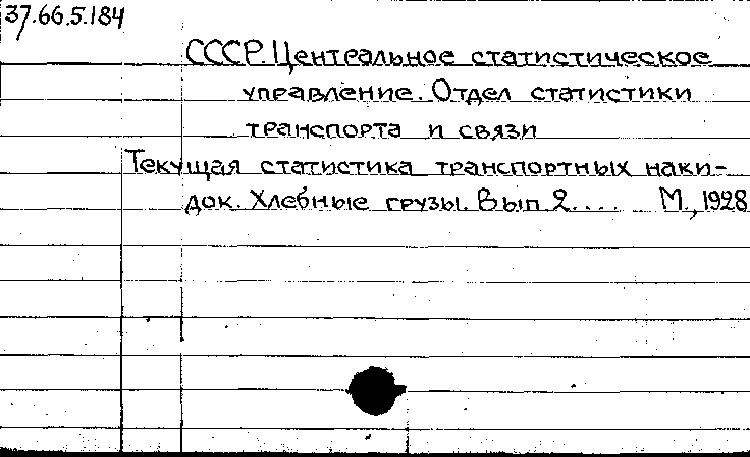 37.66.5.184
СССР. Центральное статистическое
управление. Отдел статистики
транспорта и связи
Текущая статистика транспортных наки-
док. Хлебные грузы. Вып. 2.... М., 1928